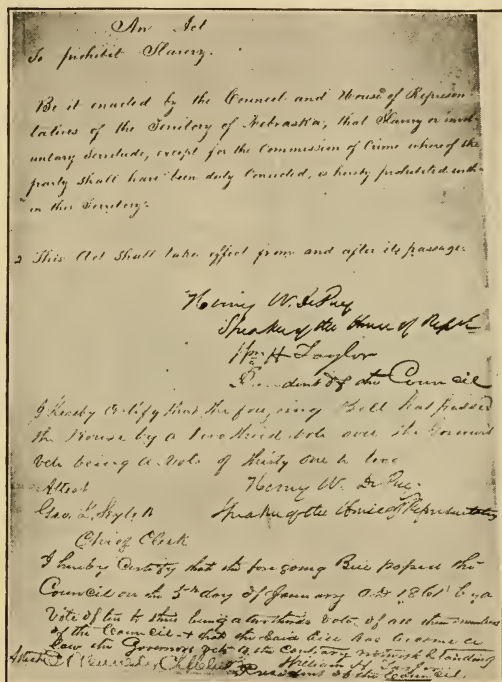 An Act
To prohibit Slavery.
Be it enacted by the Council and House of Represen-
tatives of the Territory of Nebraska, that Slavery or invol-
untary Servitude, except for the Commission of Crime whereof the
party shall have been duly Convicted, is hereby prohibited with-
in this Territory.
2 This Act shall take effect from and after its passage.
Henry W. DePuy
Speaker of the House of Rep
Wm H Taylor
President of the Council
I hereby Certify that the foregoing Bill has passed
the House by a two third vote over the Governors
veto being a vote of thirty one to two
Attest Henry W. DePuy.
Geo. L. Speaker of the House of Representatives
Chief Clerk
I hereby Certify that the foregoing Bill passed the
Council on the 5th day of January A.D. 1861 by a
Vote of ten to three being a two thirds vote of all the members
of the Council & that the said Bill has become a
law the Governors veto to the contrary notwithstanding
Attest William H Taylor
President of the Council.